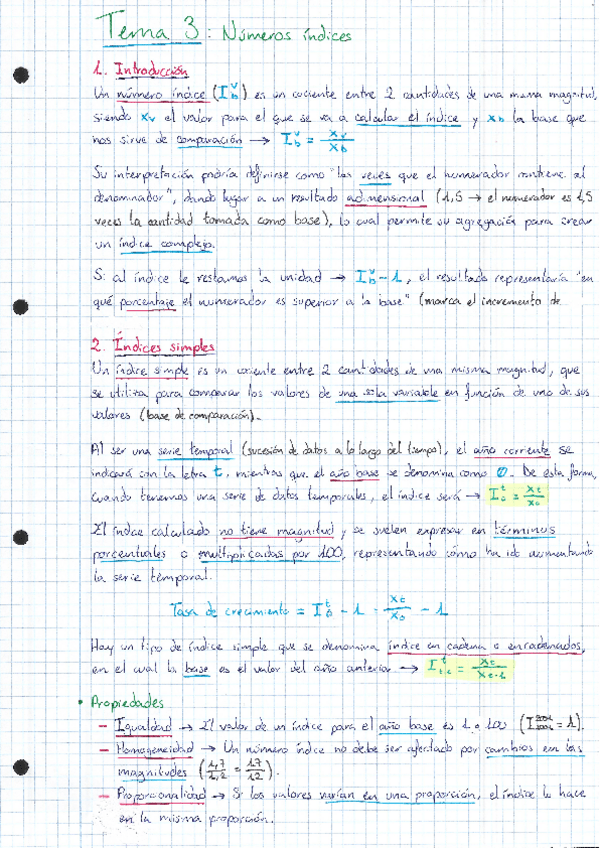 Tema 3: Números índices
1. Introducción
Un número índice (I_b^v) es un cociente entre 2 cantidades de una misma magnitud,
siendo x_v el valor para el que se va a calcular el índice y x_b la base que
nos sirve de comparación → I_b^v = x_v/x_b
Su interpretación podría definirse como "las veces que el numerador contiene al
denominador", dando lugar a un resultado adimensional (1,5 → el numerador es 1,5
veces la cantidad tomada como base), lo cual permite su agregación para crear
un índice complejo.
Si al índice le restamos la unidad → I_b^v - 1, el resultado representaría "en
qué porcentaje el numerador es superior a la base" (marca el incremento de
2. Índices simples
Un índice simple es un cociente entre 2 cantidades de una misma magnitud, que
se utiliza para comparar los valores de una sola variable en función de uno de sus
valores (base de comparación).
Al ser una serie temporal (sucesión de datos a lo largo del tiempo), el año corriente se
indicará con la letra t, mientras que el año base se denomina como 0. De esta forma,
cuando tenemos una serie de datos temporales, el índice será → I_0^t = x_t/x_0
El índice calculado no tiene magnitud y se suelen expresar en términos
porcentuales o multiplicados por 100, representando cómo ha ido aumentando
la serie temporal.
Tasa de crecimiento = I_0^t - 1 = x_t/x_0 - 1
Hay un tipo de índice simple que se denomina índice en cadena o encadenados,
en el cual la base es el valor del año anterior → I_{t-1}^t = x_t/x_{t-1}
• Propiedades
- Igualdad → El valor de un índice para el año base es 1 o 100 ( = 1).
- Homogeneidad → Un número índice no debe ser afectado por cambios en las
magnitudes (1,7/1,2 = 17/12).
- Proporcionalidad → Si los valores varían en una proporción, el índice lo hace
en la misma proporción.